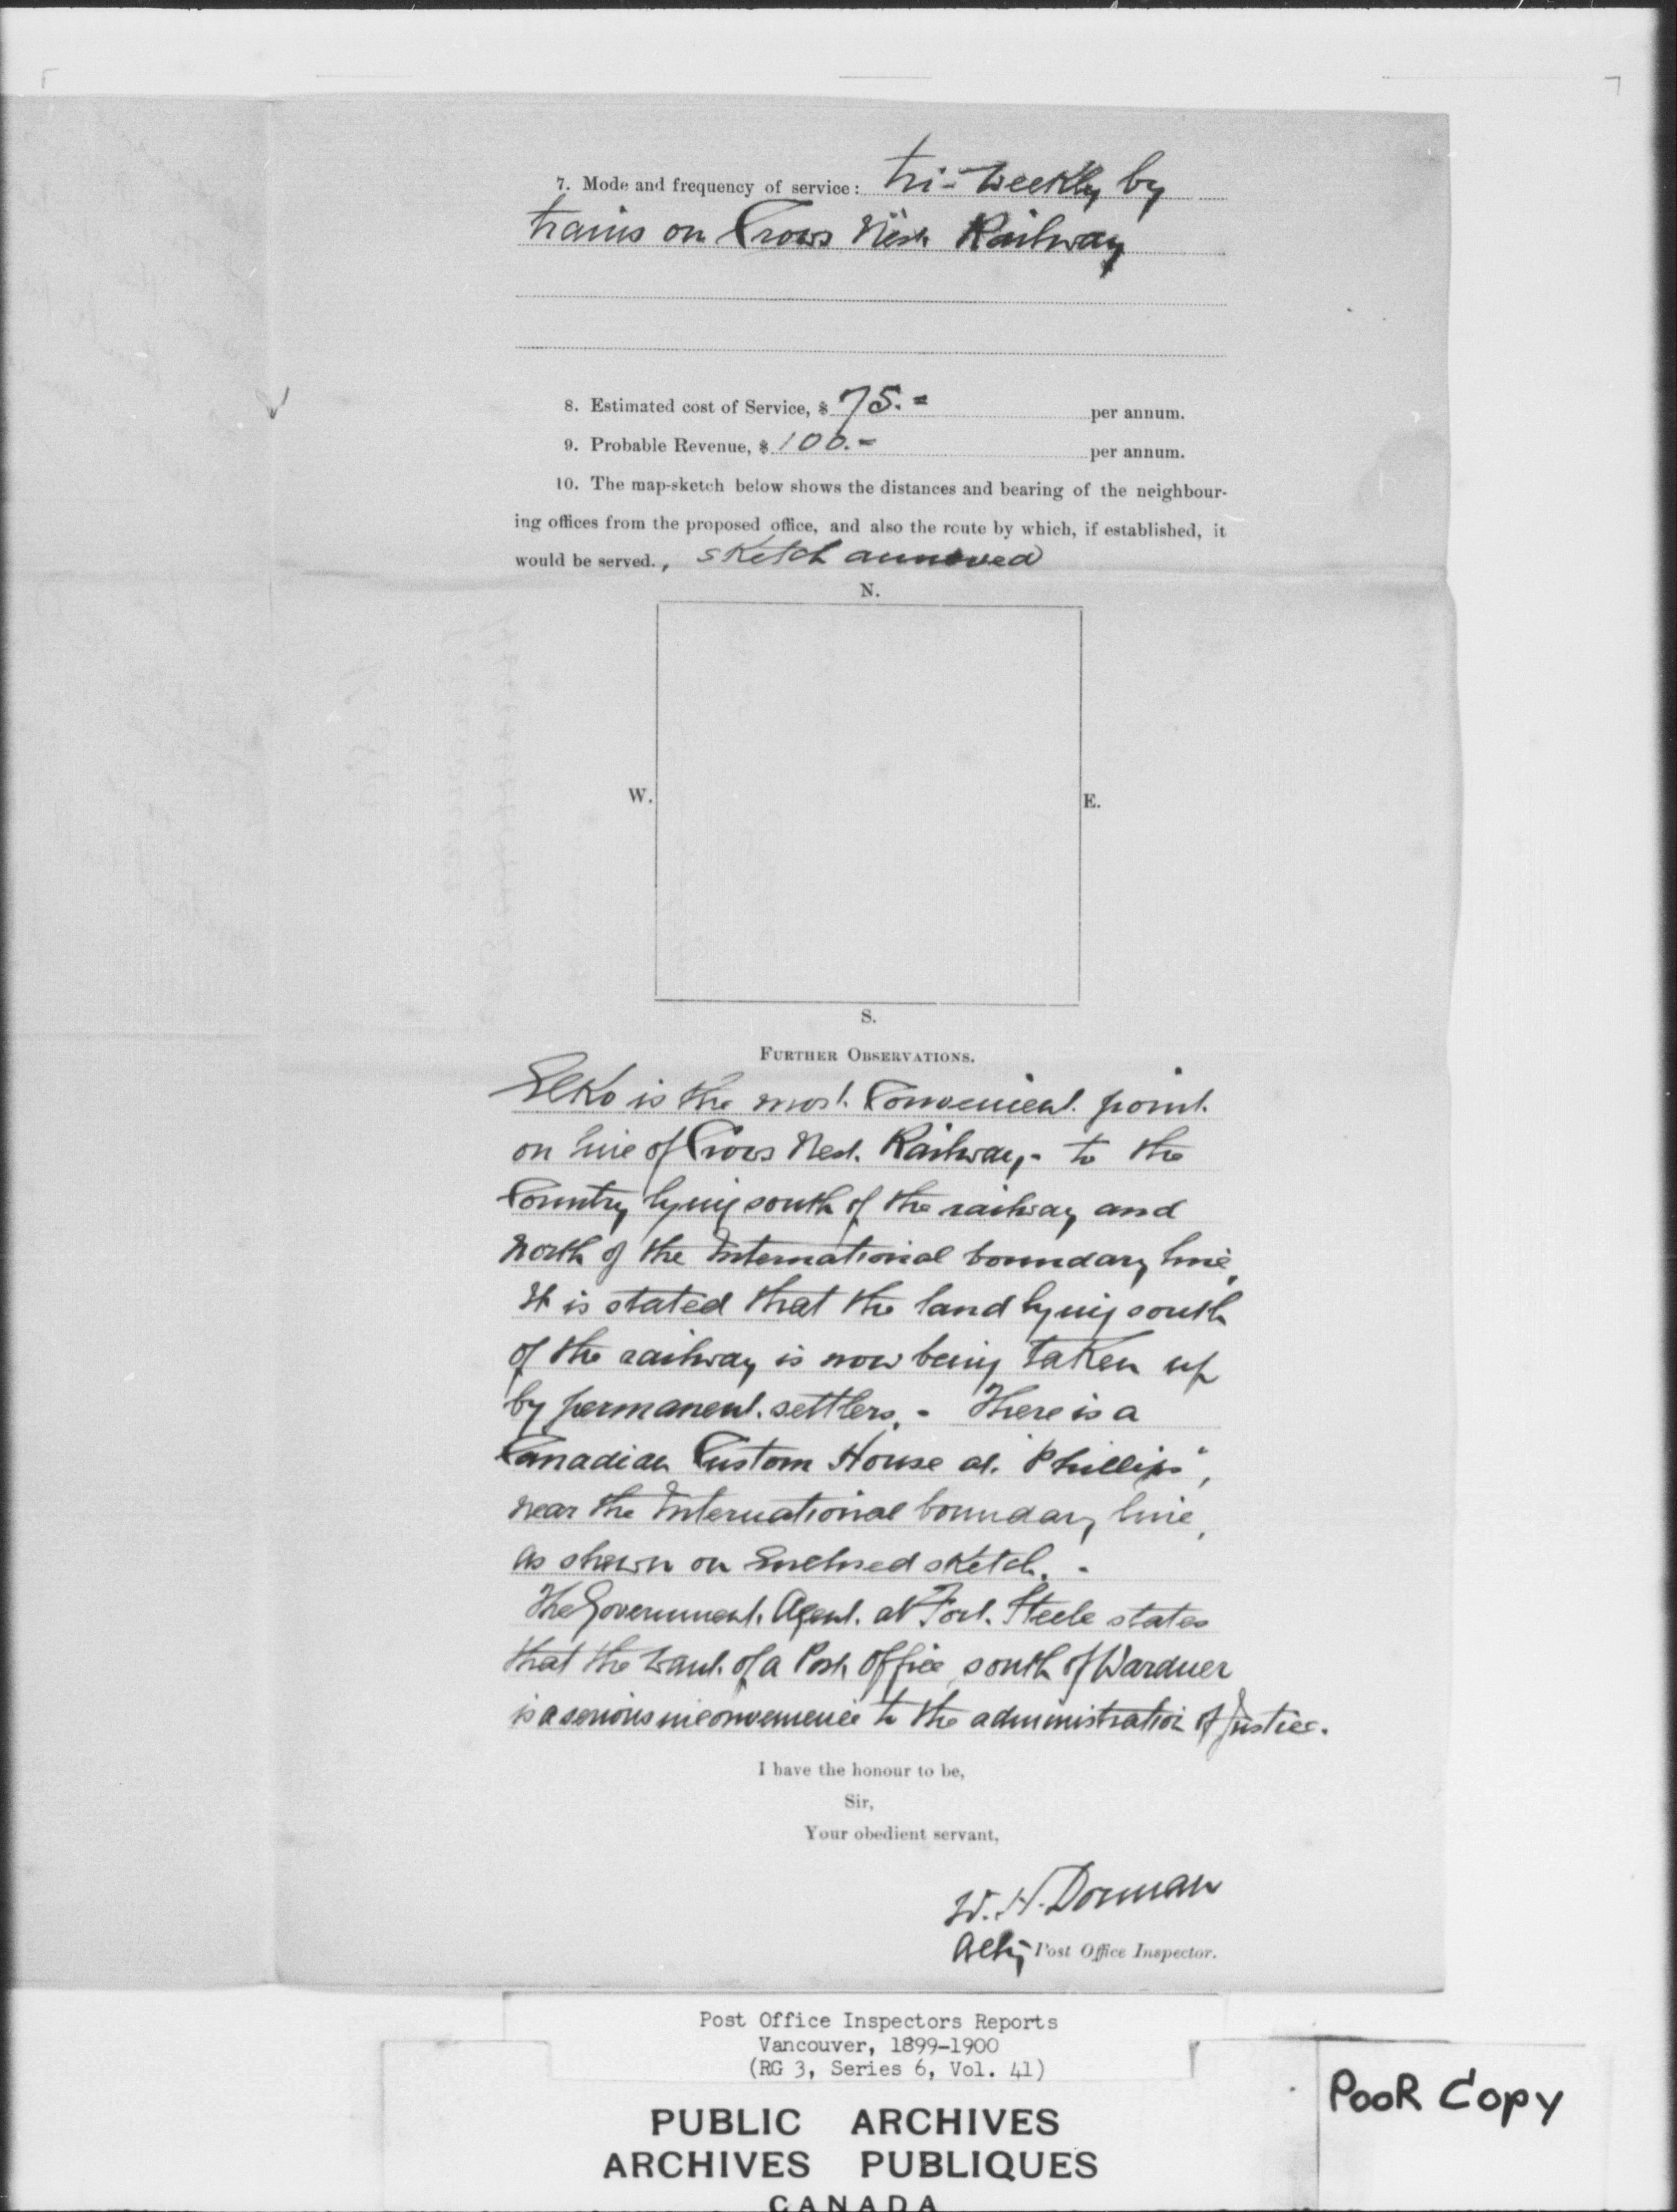 7. Mode and frequency of service: tri-weekly by
trains on Crows Nest Railway
8. Estimated cost of Service, $ 75.= per annum.
9. Probable Revenue, $ 100.- per annum.
10. The map-sketch below shows the distances and bearing of the neighbour-
ing offices from the proposed office, and also the route by which, if established, it
would be served., sketch annexed
N.
W.
E.
S.
FURTHER OBSERVATIONS.
Elko is the most Convenient point
on line of Crows Nest Railway,- to the
Country lying south of the railway and
North of the International boundary line.
It is stated that the land lying south
of the railway is now being taken up
by permanent settlers. - There is a
Canadian Custom House at "Phillips",
near the International boundary line,
as shewn on Enclosed sketch. -
The Government Agent at Fort Steele states
that the want of a Post Office south of Wardner
is a serious inconvenience to the administration of Justice.
I have the honour to be,
Sir,
Your obedient servant,
W. H. Dorman
Actg Post Office Inspector.
Post Office Inspectors Reports
Vancouver, 1899-1900
(RG 3, Series 6, Vol. 41)
POOR COPY
PUBLIC ARCHIVES
ARCHIVES PUBLIQUES
CANADA